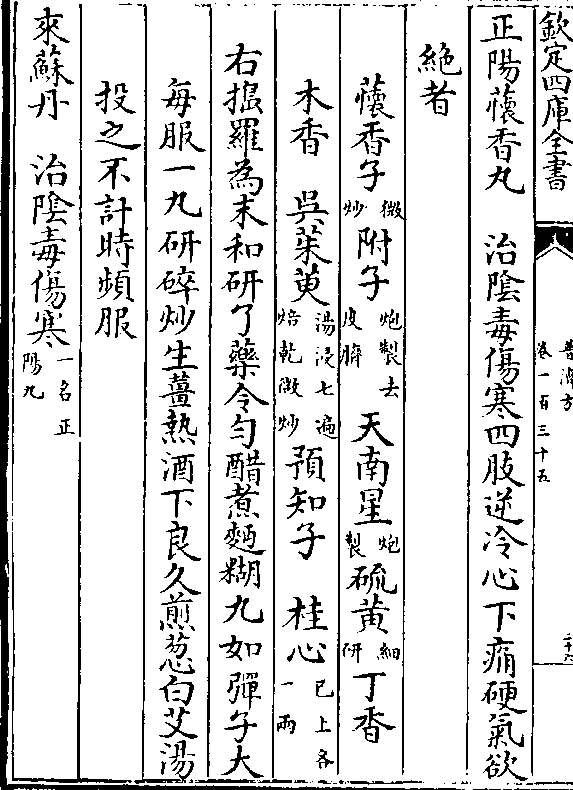 欽定四庫全書
普濟方
卷一百三十五
二十六
正陽蘹香丸　治陰毒傷寒四肢逆冷心下痛硬氣欲
絶者
蘹香子微炒附子炮製去皮臍天南星炮製硫黄細研丁香
木香　吳茱萸湯浸七遍焙乾微炒預知子　桂心已上各一兩
右搗羅為末和研了藥令勻醋煮麵糊丸如彈子大
每服一丸研碎炒生薑熱酒下良久煎葱白艾湯
投之不計時頻服
來蘇丹　治陰毒傷寒一名正陽丸